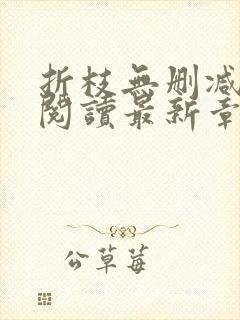 折枝無刪減
閱讀最新章
公草莓